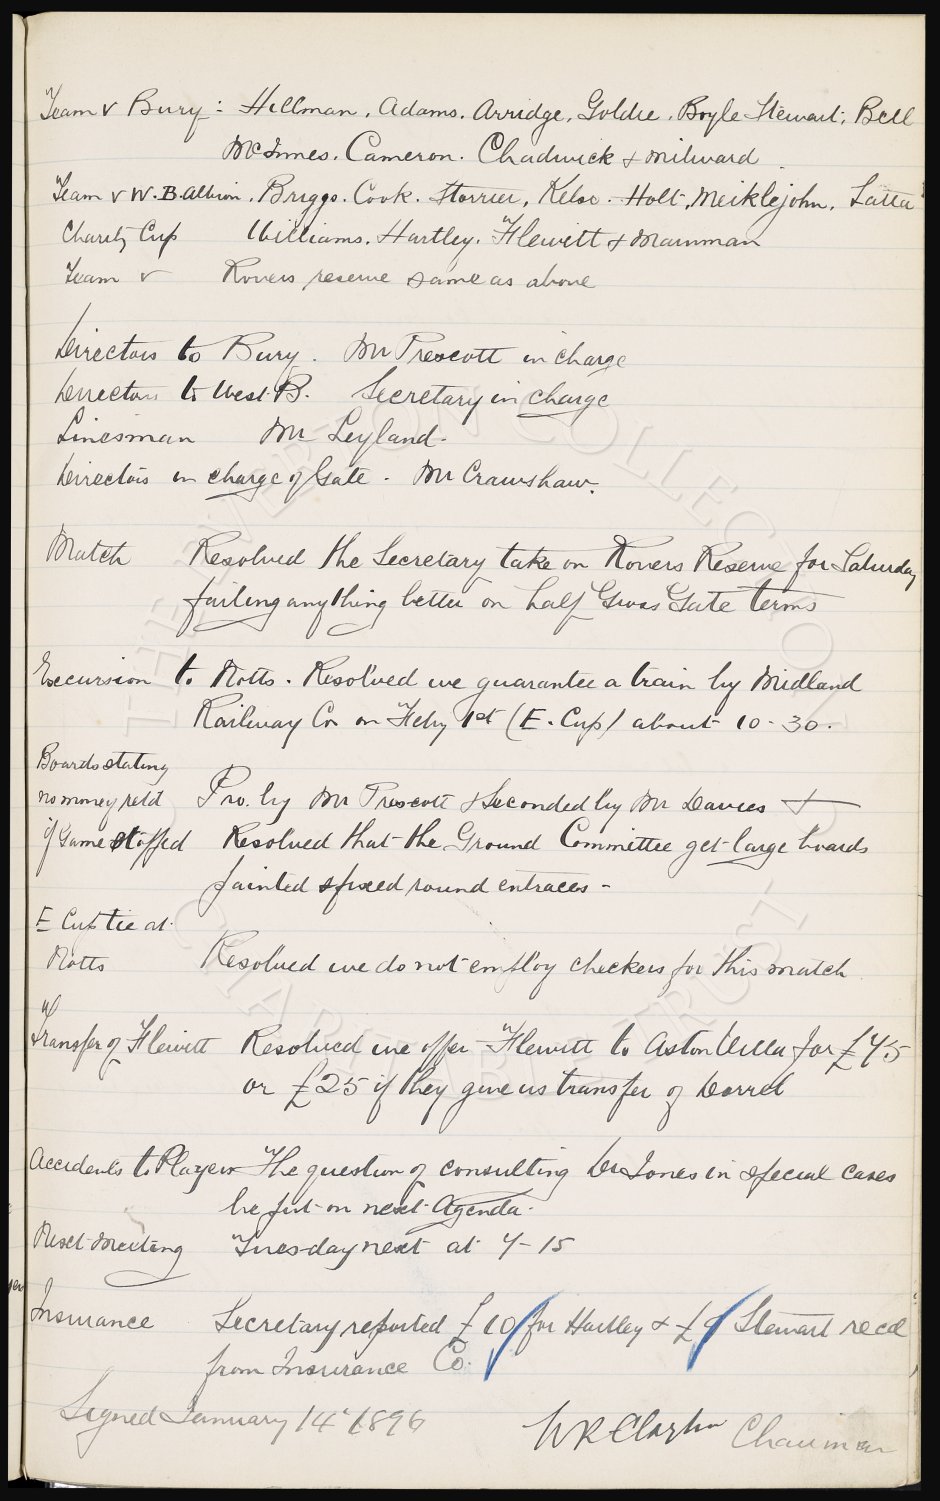 Team v Bury: Hillman, Adams, Arridge, Goldie, Boyle Stewart, Bell
McInnes, Cameron, Chadwick & Milward
Team v W.B. Albion, Briggs. Cook. Storrier, Kelso. Holt, Meiklejohn, Latta
Charity Cup Williams, Hartley, Flewitt & Mainman
Team v Rovers reserve same as above
Directors to Bury. Mr Prescott in charge
Directors to West B. Secretary in charge
Linesman Mr Leyland.
Directors in charge of Gate. Mr Crawshaw.
Match Resolved the Secretary take on Rovers Reserve for Saturday
failing anything better on half Gross Gate terms
Excursion to Notts. Resolved we guarantee a train by Midland
Railway Co on Feby 1st (E. Cup) about 10-30.
Boards stating
no money retd Pro. by Mr Prescott & Seconded by Mr Davies &
if Game stopped Resolved that the Ground Committee get large boards
painted & fixed round entraces -
E Cup tie at
Notts Resolved we do not employ checkers for this match
Transfer of Flewitt Resolved we offer Flewitt to Aston Villa for £75
or £25 if they give us transfer of Dorrel
Accidents to Players The question of consulting Dr Jones in special cases
be put on next Agenda.
Next Meeting Tuesday next at 7-15
Insurance Secretary reported £10 for Hartley & £9 Stewart recd
from Insurance Co.
Signed January 14th 1896 W R Clayton Chairman
THE EVERTON COLLECTION
CHARITABLE TRUST